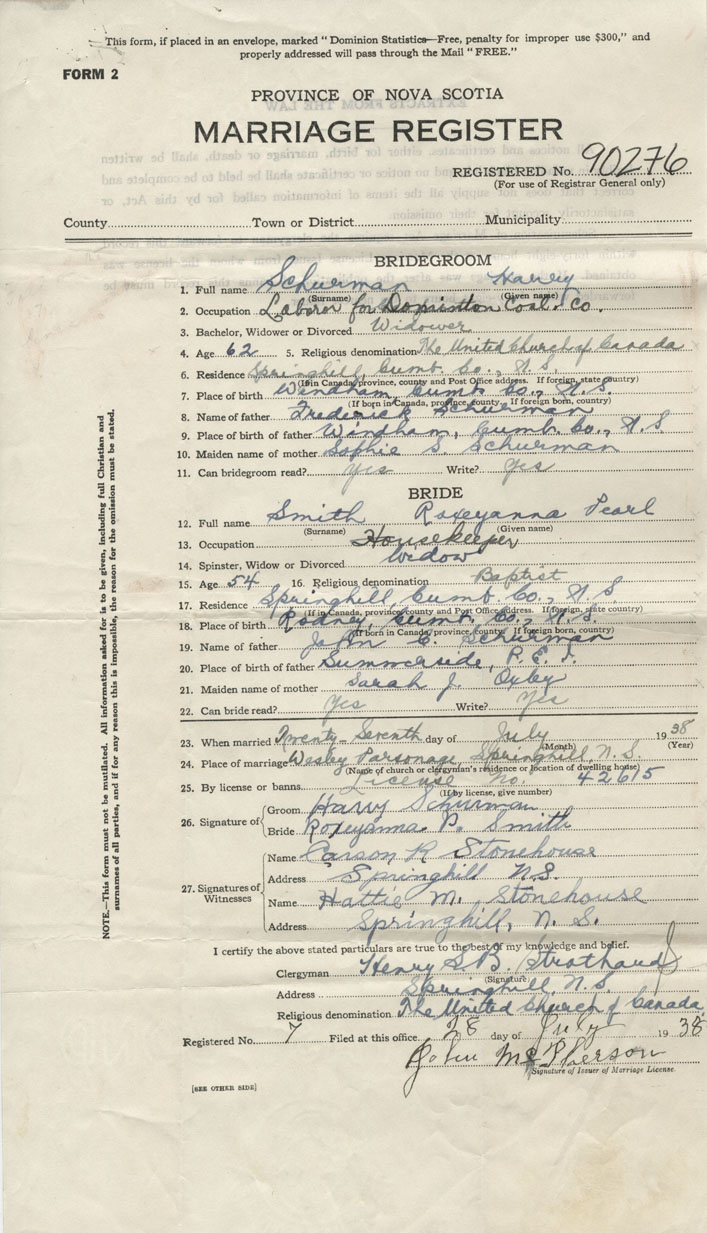 This form, if placed in an envelope, marked "Dominion Statistics—Free, penalty for improper use $300," and
properly addressed will pass through the Mail "FREE."
FORM 2
PROVINCE OF NOVA SCOTIA
MARRIAGE REGISTER
REGISTERED No. 90276
(For use of Registrar General only)
County Town or District Municipality
BRIDEGROOM
1. Full name Schurman Harvey
(Surname) (Given name)
2. Occupation Laborer for Dominion Coal Co.
3. Bachelor, Widower or Divorced Widower
4. Age 62 5. Religious denomination The United Church of Canada
6. Residence Springhill, Cumb. Co., N.S.
(If in Canada, province, county and Post Office address. If foreign, state country)
7. Place of birth Windham, Cumb. Co., N.S.
(If born in Canada, province, county. If foreign born, country)
8. Name of father Frederick Schurman
9. Place of birth of father Windham, Cumb. Co., N.S
10. Maiden name of mother Sophie S. Schurman
11. Can bridegroom read? Yes Write? Yes
BRIDE
12. Full name Smith Roxeyanna Pearl
(Surname) (Given name)
13. Occupation Housekeeper
14. Spinster, Widow or Divorced Widow
15. Age 54 16. Religious denomination Baptist
17. Residence Springhill, Cumb. Co., N.S
(If in Canada, province, county and Post Office address. If foreign, state country)
18. Place of birth Rodney, Cumb. Co., N.S.
(If born in Canada, province, county. If foreign born, country)
19. Name of father John C. Schurman
20. Place of birth of father Summerside, P.E.I.
21. Maiden name of mother Sarah J. Oxley
22. Can bride read? Yes Write? Yes
23. When married Twenty-Seventh day of July 1938
(Month) (Year)
24. Place of marriage Wesley Parsonage, Springhill, N.S.
(Name of church or clergyman's residence or location of dwelling house)
25. By license or banns License No. 42615
(If by license, give number)
26. Signature of Groom Harvy Schurman
Bride Roxeyanna P. Smith
27. Signatures of Witnesses
Name Carson R Stonehouse
Address Springhill N.S.
Name Hattie M. Stonehouse
Address Springhill, N. S.
I certify the above stated particulars are true to the best of my knowledge and belief.
Clergyman Henry S. B. Strothard
(Signature)
Address Springhill N.S.
Religious denomination The United Church of Canada
Registered No. 7 Filed at this office 28 day of July 1938
John McPherson
Signature of Issuer of Marriage License.
[SEE OTHER SIDE]
NOTE.—This form must not be mutilated. All information asked for is to be given, including full Christian and
surnames of all parties, and if for any reason this is impossible, the reason for the omission must be stated.